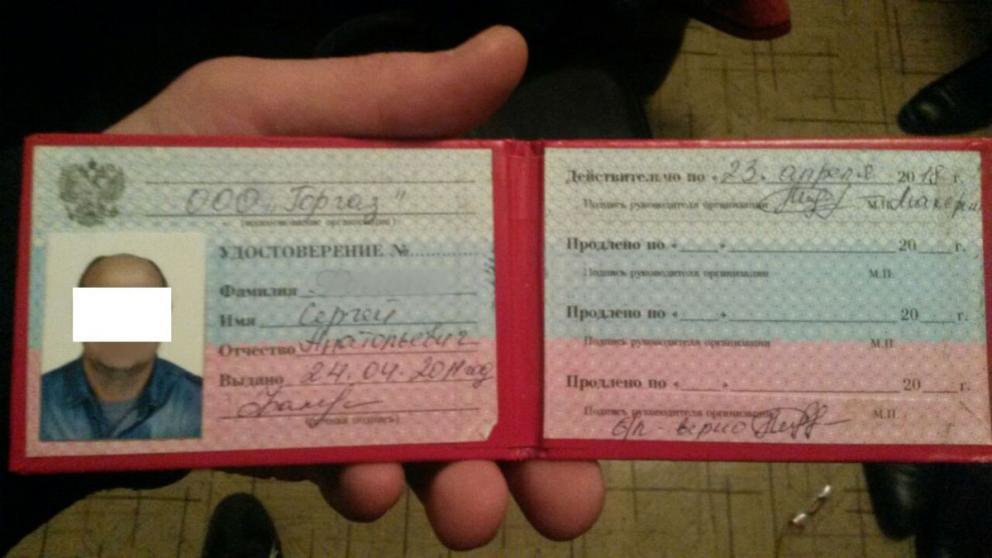 ООО „Горгаз"
(наименование организации)
УДОСТОВЕРЕНИЕ №
Фамилия
Имя Сергей
Отчество Анатольевич
Выдано 24.04.2017 год
(личная подпись)
Действительно по « 23. апреля 2018 г.
Подпись руководителя организации М.П.
Продлено по « » 20 г.
Подпись руководителя организации М.П.
Продлено по « » 20 г.
Подпись руководителя организации М.П.
Продлено по « » 20 г.
Подпись руководителя организации М.П.
б/п - верно